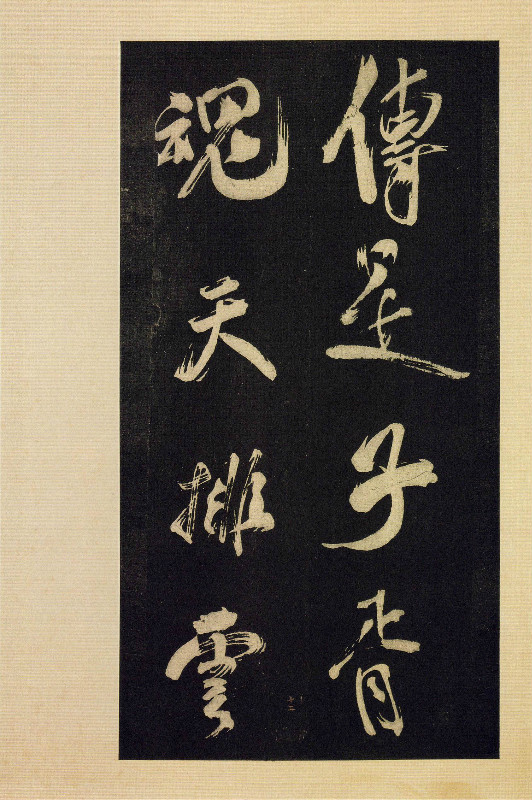 傳是子胥
魂天排雲